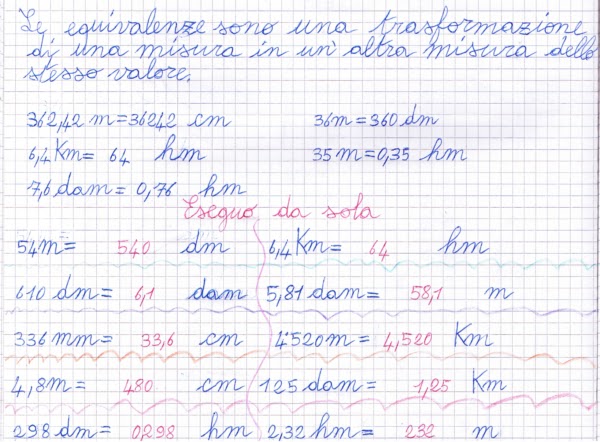 Le equivalenze sono una trasformazione
di una misura in un'altra misura dello
stesso valore.
362,42 m = 36242 cm 36m = 360 dm
6,4 Km = 64 hm 35 m = 0,35 hm
7,6 dam = 0,76 hm
Eseguo da sola
54m = 540 dm 6,4 Km = 64 hm
610 dm = 6,1 dam 5,81 dam = 58,1 m
336 mm = 33,6 cm 4520m = 4,520 Km
4,8m = 480 cm 125 dam = 1,25 Km
298 dm = 0,298 hm 2,32 hm = 232 m